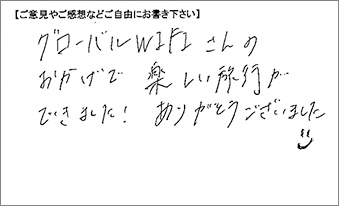 【ご意見やご感想などご自由にお書き下さい】
グローバルWiFiさんの
おかげで 楽しい旅行が
できました! ありがとうございました